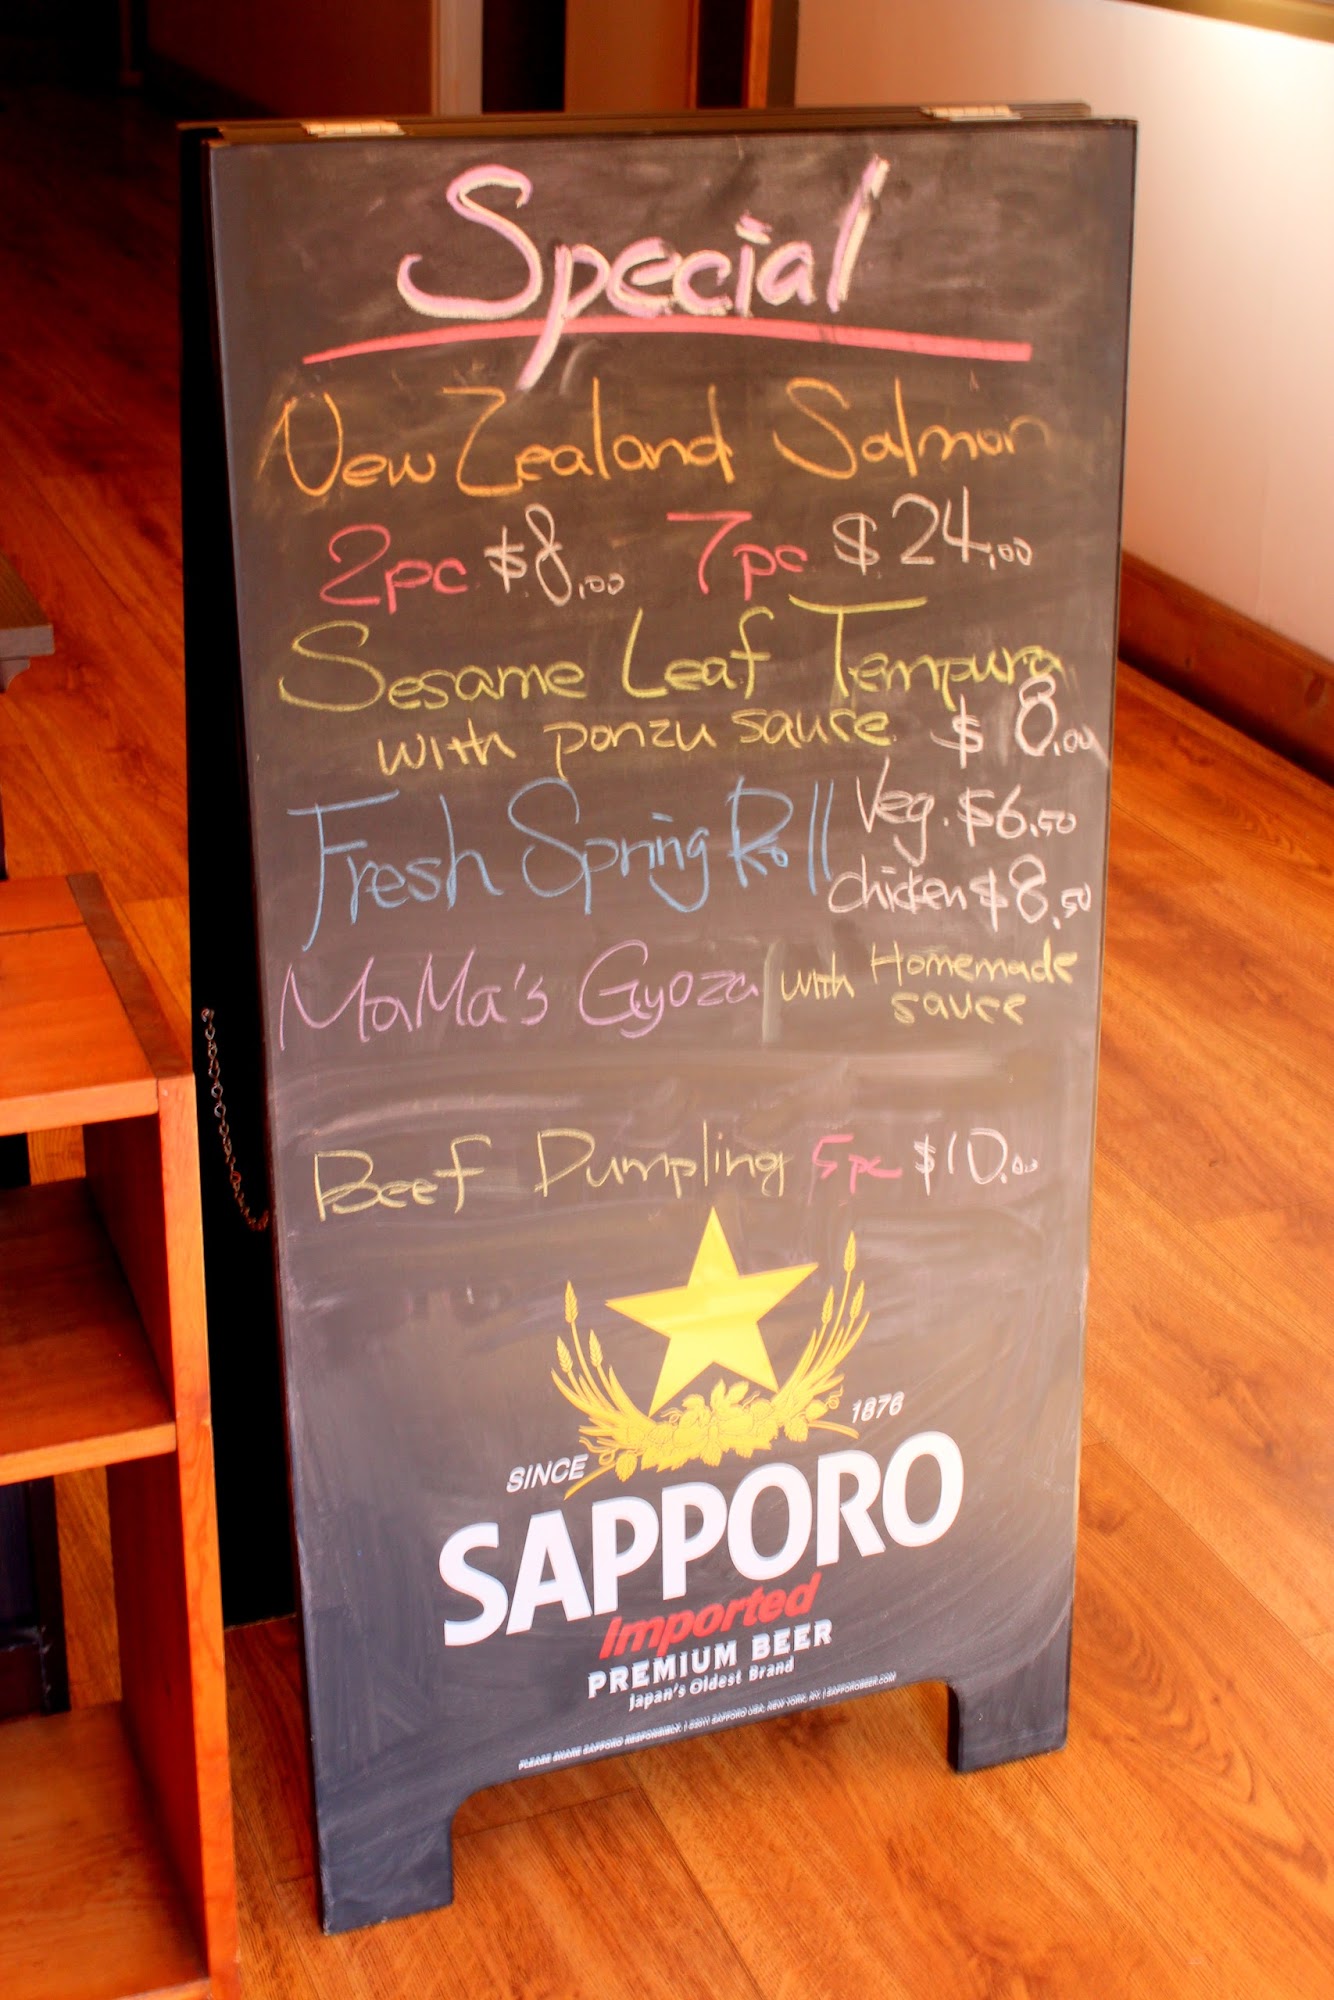 Special
New Zealand Salmon
2pc $8.00 7pc $24.00
Sesame Leaf Tempura
with ponzu sauce $8.00
Fresh Spring Roll Veg. $6.50
chicken $8.50
MaMa's Gyoza with Homemade
sauce
Beef Dumpling 5pc $10.00
SINCE 1876
SAPPORO
Imported
PREMIUM BEER
Japan's Oldest Brand
PLEASE SHARE SAPPORO RESPONSIBLY. | ©2011 SAPPORO USA, NEW YORK, NY. | SAPPOROBEER.COM